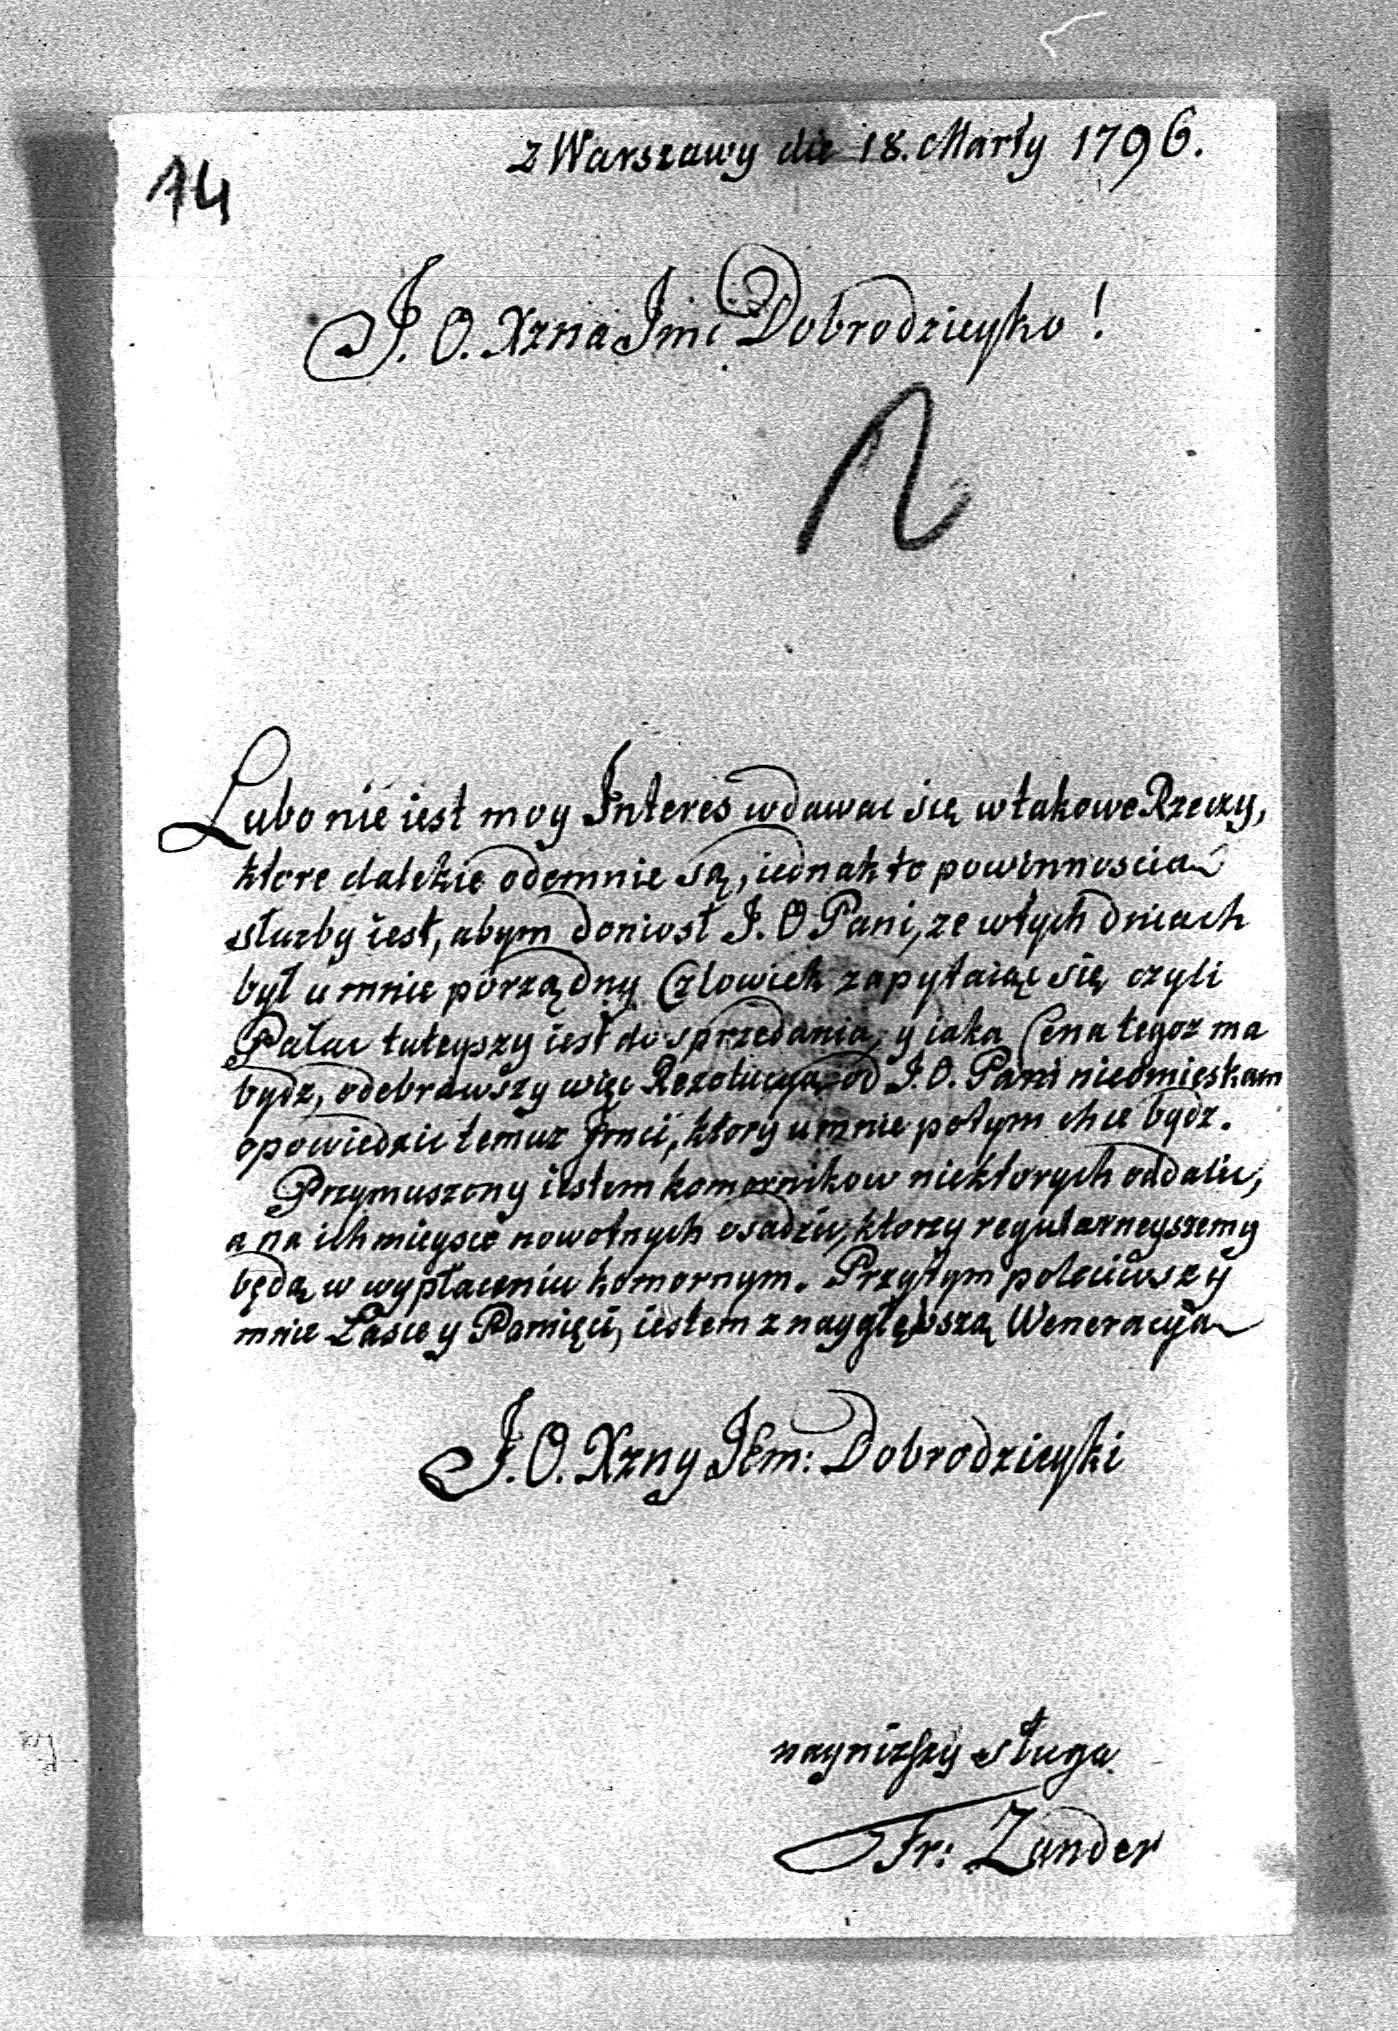 z Warszawy die 18. Marty 1796.
14
J. O. Xzna Jmć Dobrodzieyko!
Lubo nie iest moy Interes wdawac się w takowe Rzeczy,
ktore dalekie odemnie są, iednak to powinnoscią
służby iest, abym doniosł J. O Pani, ze w tych dniach
był u mnie porządny Człowiek zapytaiąc się czyli
Pałac tuteyszy iest do sprzedania, y iaka Cena tegoz ma
bydz, odebrawszy więc Rezolucyą od J. O. Pani nieomięszkam
opowiedzic temuz Jmći, ktory u mnie potym chce bydz.
Przymuszony iestem komornikow niektorych oddalic,
a na ich mieysce nowotnych osadzic, ktorzy regularneyszemy
będą w wypłaceniu komornym. Przytym poleciwszy
mnie Łasce y Pamięci, iestem z naygłębszą Weneracyą
J. O. Xzny JEm: Dobrodzieyki
naynizszy sługa
Fr: Zander